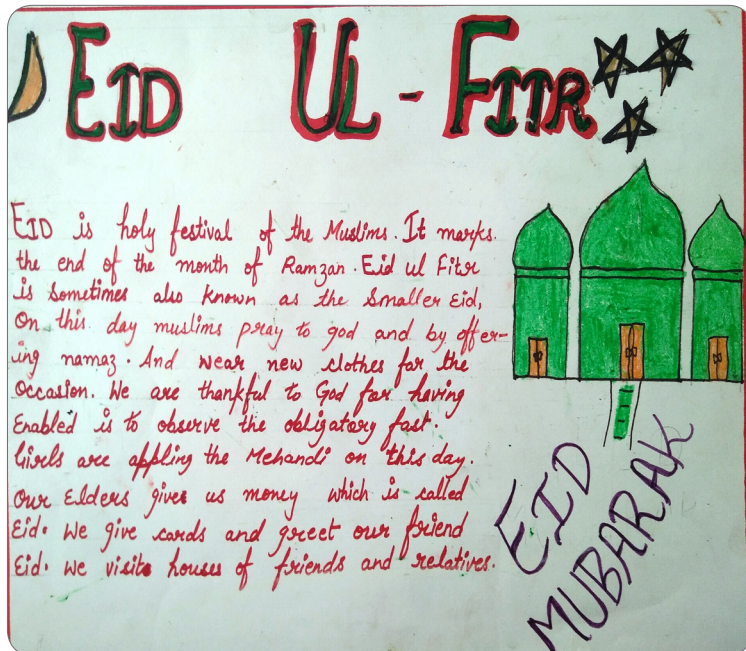 EID UL-FITR
EID is holy festival of the Muslims. It marks.
the end of the month of Ramzan. Eid ul Fitr
is Sometimes also known as the Smaller Eid,
On this day muslims pray to god and by offer-
ing namaz. And wear new clothes for the
Occasion. We are thankful to God for having
Enabled is to observe the obligatory fast.
Girls are appling the Mehandi on this day.
Our Elders gives us money which is called
Eid. We give cards and greet our friend
Eid. We visits houses of friends and relatives.
EID
MUBARAK